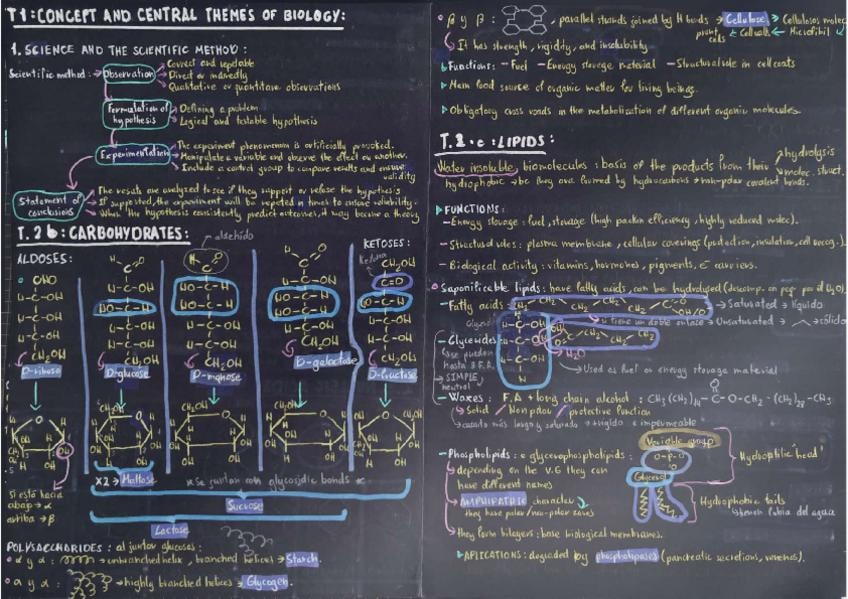 T1: CONCEPT AND CENTRAL THEMES OF BIOLOGY:
1. SCIENCE AND THE SCIENTIFIC METHOD:
Scientific method: → Observation
Correct and repeatable
Direct or indirectly
Qualitative or quantitative observations
Formulation of hypothesis
Defining a problem
Logical and testable hypothesis
Experimentation
The experiment phenomenon is artificially provoked.
Manipulate a variable and observe the effect on another.
Include a control group to compare results and ensure validity
Statement of conclusions
The results are analyzed to see if they support or refuse the hypothesis
If supported, the experiment will be repeated n times to ensure reliability.
When the hypothesis consistently predict outcomes, it may become a theory
T.2b: CARBOHYDRATES:
aldehído
ALDOSES:
KETOSES:
CHO
H-C-OH
H-C-OH
H-C-OH
CH₂OH
D-ribose
D-glucose
D-manose
D-galactose
D-fructose
Si está hacia
abajo → α
arriba → β
x2 → Maltose
Se juntan con glycosidic bonds
Sucrose
Lactose
POLYSACCHARIDES: al juntar glucoses:
α y α: → unbranched helix, branched helices → Starch.
α y α: → highly branched helices → Glycogen.
β y β: , parallel strands joined by H bonds → Cellulose → Cellulosos molec
plant cells ← Cell walls ← Microfibil
It has strength, rigidity, and insolubility
Functions: - Fuel - Energy storage material - Structural role in cell coats
Main food source of organic matter for living beings.
Obligatory cross roads in the metabolization of different organic molecules.
T.2.c: LIPIDS:
Water insoluble, biomolecules: basis of the products from their
hydrolysis
molec. struct.
hydrophobic → bc they are formed by hydrocarbons → non-polar covalent bonds.
FUNCTIONS:
- Energy storage: fuel, storage (high packin efficiency, highly reduced molec).
- Structural roles: plasma membrane, cellular coverings (protection, insulation, cell recog.).
- Biological activity: vitamins, hormones, pigments, e⁻ carriers.
Saponificable lipids: have fatty acids, can be hydrolised
- Fatty acids:
→ Saturated →
si tiene un doble enlace → Unsaturated →
- Glycerides
Se pueden
hasta 3 F.A.
→ SIMPLE,
neutral
H₂O
→ Used as fuel or energy storage material
- Waxes: F.A + long chain alcohol: CH₃(CH₂)₁₄-C-O-CH₂-(CH₂)₂₈-CH₃
Solid / Non polar / protective function
cuanto más largo y saturado → + rígido e impermeable
- Phospholipids: e glycerophospholipids:
depending on the V.G they can
have different names
AMPHIPATHIC character
they have polar/non-polar zones
they form bilayers: base biological membranes.
APLICATIONS: degraded by phospholipases (pancreatic secretions, venoms).
Variable group
Glycerol
Hydrophilic 'head'
Hydrophobic tails
tienen fobia del agua